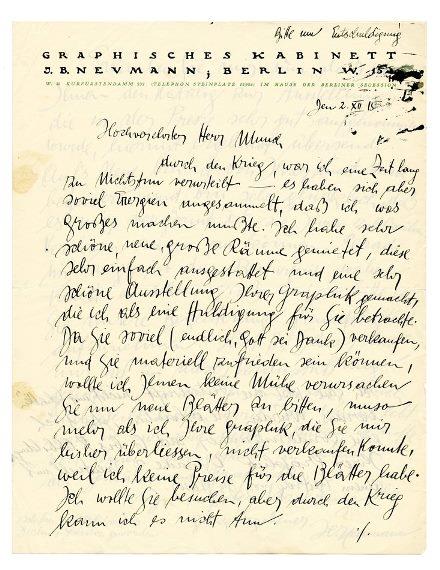 Bitte um Entschuldigung
GRAPHISCHES KABINETT
J.B. NEVMANN; BERLIN W. 15
W. 15 KURFÜRSTENDAMM 232 (TELEPHON STEINPLATZ) IM HAUSE DER BERLINER SECESSION
Den 2. XII 15
Hochverehrter Herr Munch
durch den Krieg, war ich eine Zeit lang
zu Nichtstun verurteilt — es haben sich aber
soviel Energien angesammelt, daß ich was
großes machen mußte. Ich habe sehr
schöne, neue, große Räume gemietet, diese
sehr einfach ausgestattet und eine sehr
schöne Ausstellung Ihrer Graphik gemacht,
die ich als eine Huldigung für Sie betrachte.
Da Sie soviel (endlich, Gott sei Dank) verkaufen,
und Sie materiell zufrieden sein können,
wollte ich Ihnen keine Mühe verursachen
Sie um neue Blätter zu bitten, umso
mehr als ich Ihre Graphik, die Sie mir
bisher überliessen, nicht verkaufen konnte,
weil ich keine Preise für die Blätter habe.
Ich wollte Sie besuchen, aber durch den Krieg
kann ich es nicht tun.
./.